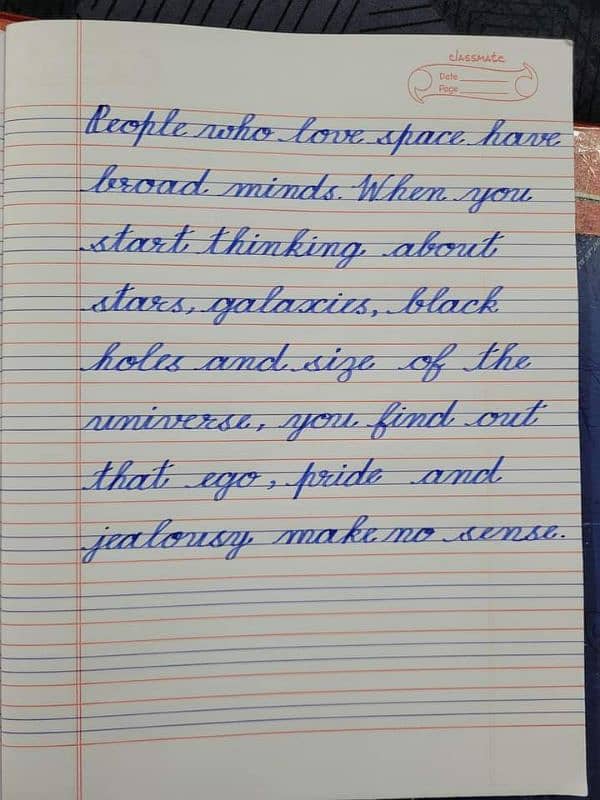 classmate
Date
Page
People who love space have
broad minds. When you
start thinking about
stars, galaxies, black
holes and size of the
universe, you find out
that ego, pride and
jealousy make no sense.